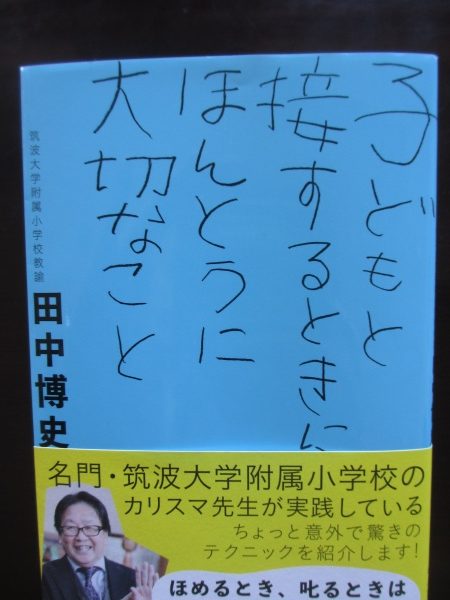 子どもと
接するときに
ほんとうに
大切なこと
筑波大学附属小学校教諭
田中博史
名門・筑波大学附属小学校の
カリスマ先生が実践している
ちょっと意外で驚きの
テクニックを紹介します!
ほめるとき、叱るときは